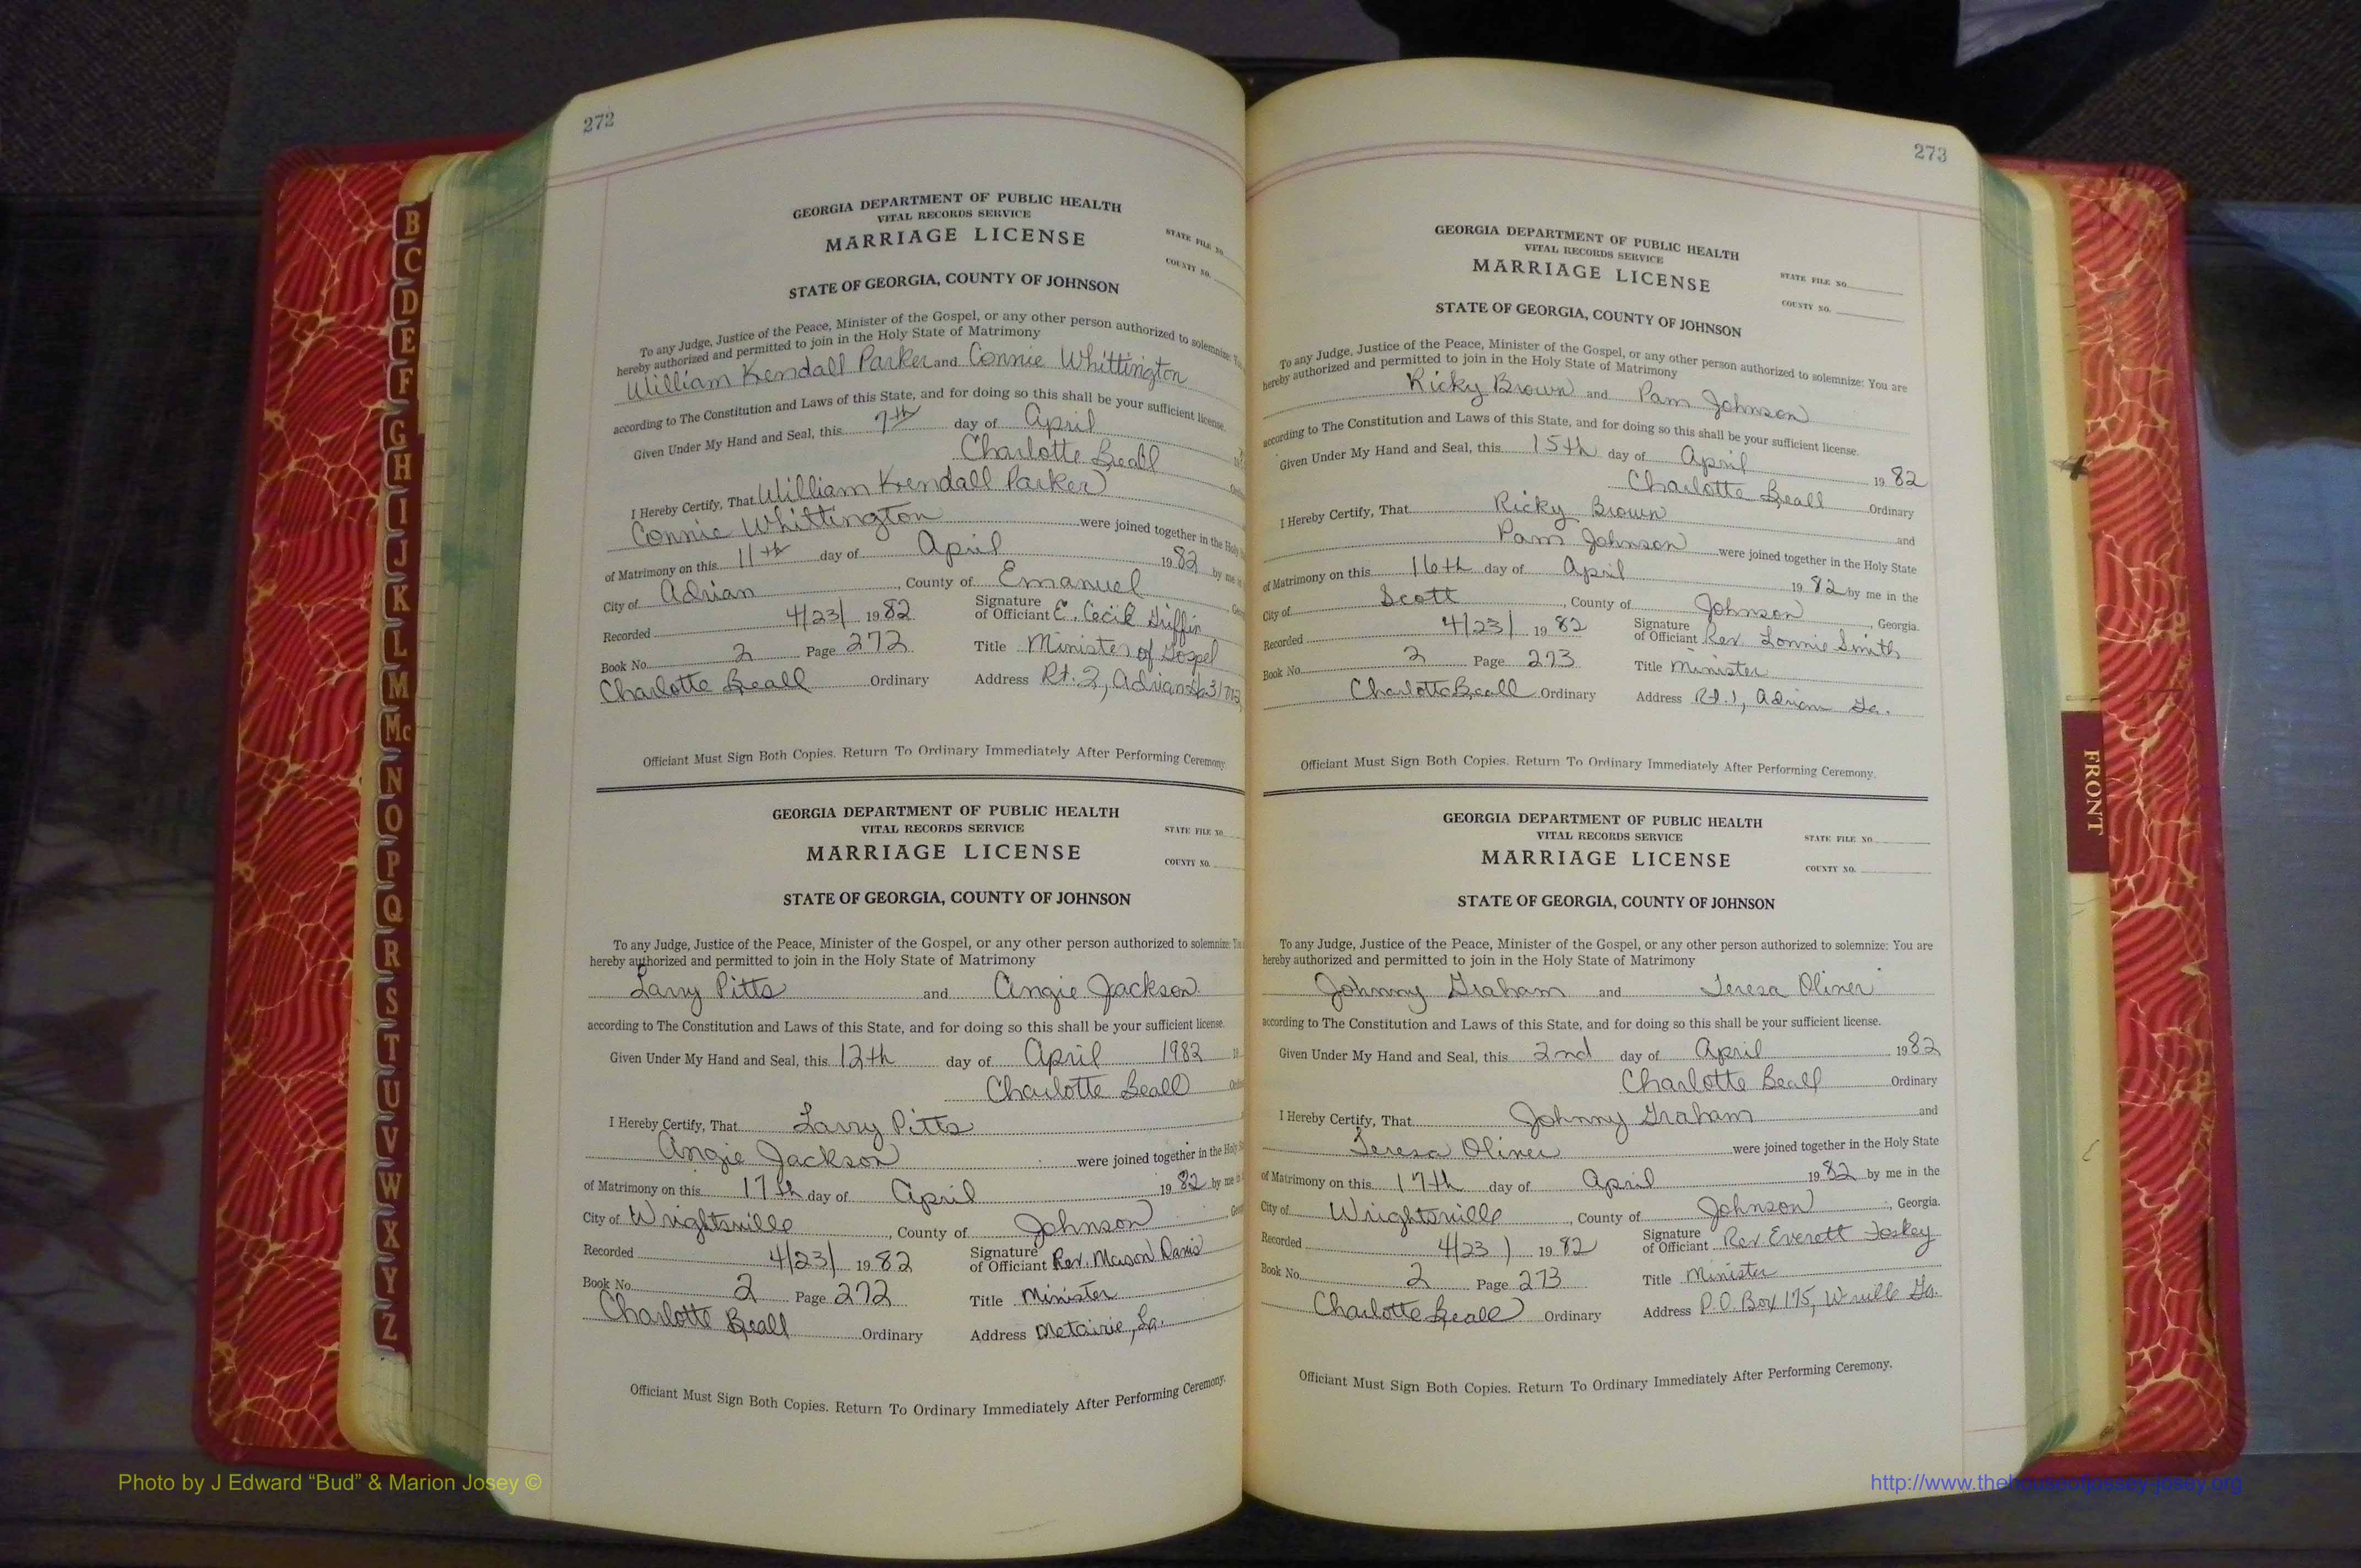 272
GEORGIA DEPARTMENT OF PUBLIC HEALTH
VITAL RECORDS SERVICE
MARRIAGE LICENSE
STATE FILE NO.
COUNTY NO.
STATE OF GEORGIA, COUNTY OF JOHNSON
To any Judge, Justice of the Peace, Minister of the Gospel, or any other person authorized to solemnize:
hereby authorized and permitted to join in the Holy State of Matrimony
William Kendall Parker and Connie Whittington
according to The Constitution and Laws of this State, and for doing so this shall be your sufficient license.
Given Under My Hand and Seal, this 7th day of April
Charlotte Beall
I Hereby Certify, That William Kendall Parker
Connie Whittington were joined together in the Holy
of Matrimony on this 11th day of April 1982 by me
City of Adrian, County of Emanuel
Recorded 4/23/ 1982 Signature of Officiant E. Cecil Griffin
Book No. 2 Page 272 Title Minister of Gospel
Charlotte Beall Ordinary Address Rt. 2, Adrian Ga
Officiant Must Sign Both Copies. Return To Ordinary Immediately After Performing Ceremony.
GEORGIA DEPARTMENT OF PUBLIC HEALTH
VITAL RECORDS SERVICE
MARRIAGE LICENSE
STATE FILE NO.
COUNTY NO.
STATE OF GEORGIA, COUNTY OF JOHNSON
To any Judge, Justice of the Peace, Minister of the Gospel, or any other person authorized to solemnize:
hereby authorized and permitted to join in the Holy State of Matrimony
Larry Pitts and Angie Jackson
according to The Constitution and Laws of this State, and for doing so this shall be your sufficient license.
Given Under My Hand and Seal, this 12th day of April 1982
Charlotte Beall
I Hereby Certify, That Larry Pitts
Angie Jackson were joined together in the Holy
of Matrimony on this 17th day of April 1982 by me
City of Wrightsville, County of Johnson
Recorded 4/23/ 1982 Signature of Officiant Rev. Mason Davis
Book No. 2 Page 272 Title Minister
Charlotte Beall Ordinary Address Metairie, La.
Officiant Must Sign Both Copies. Return To Ordinary Immediately After Performing Ceremony.
273
GEORGIA DEPARTMENT OF PUBLIC HEALTH
VITAL RECORDS SERVICE
MARRIAGE LICENSE
STATE FILE NO.
COUNTY NO.
STATE OF GEORGIA, COUNTY OF JOHNSON
To any Judge, Justice of the Peace, Minister of the Gospel, or any other person authorized to solemnize: You are
hereby authorized and permitted to join in the Holy State of Matrimony
Ricky Brown and Pam Johnson
according to The Constitution and Laws of this State, and for doing so this shall be your sufficient license.
Given Under My Hand and Seal, this 15th day of April 1982
Charlotte Beall Ordinary
I Hereby Certify, That Ricky Brown and
Pam Johnson were joined together in the Holy State
of Matrimony on this 16th day of April 1982 by me in the
City of Scott, County of Johnson, Georgia.
Recorded 4/23/ 1982 Signature of Officiant Rev. Lonnie Smith
Book No. 2 Page 273 Title Minister
Charlotte Beall Ordinary Address Rt. 1, Adrian Ga.
Officiant Must Sign Both Copies. Return To Ordinary Immediately After Performing Ceremony.
GEORGIA DEPARTMENT OF PUBLIC HEALTH
VITAL RECORDS SERVICE
MARRIAGE LICENSE
STATE FILE NO.
COUNTY NO.
STATE OF GEORGIA, COUNTY OF JOHNSON
To any Judge, Justice of the Peace, Minister of the Gospel, or any other person authorized to solemnize: You are
hereby authorized and permitted to join in the Holy State of Matrimony
Johnny Graham and Teresa Oliner
according to The Constitution and Laws of this State, and for doing so this shall be your sufficient license.
Given Under My Hand and Seal, this 2nd day of April 1982
Charlotte Beall Ordinary
I Hereby Certify, That Johnny Graham and
Teresa Oliner were joined together in the Holy State
of Matrimony on this 17th day of April 1982 by me in the
City of Wrightsville, County of Johnson, Georgia.
Recorded 4/23 ) 1982 Signature of Officiant Rev Everett Foskey
Book No. 2 Page 273 Title Minister
Charlotte Beall Ordinary Address P.O. Box 175, W'ville Ga.
Officiant Must Sign Both Copies. Return To Ordinary Immediately After Performing Ceremony.
B
C
D
E
F
G
H
I
J
K
L
M
Mc
N
O
P
Q
R
S
T
U
V
W
X
Y
Z
FRONT
Photo by J Edward “Bud” & Marion Josey ©
http://www.thehouseofjossey-josey.org